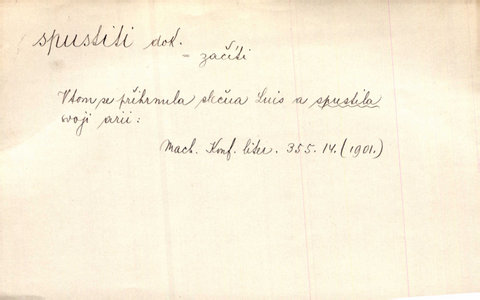 spustiti dok.
= začíti
V tom se přihrnula slečna Luis a spustila
svoji arii:
Mach. Konf. liter. 355. 14. (1901.)